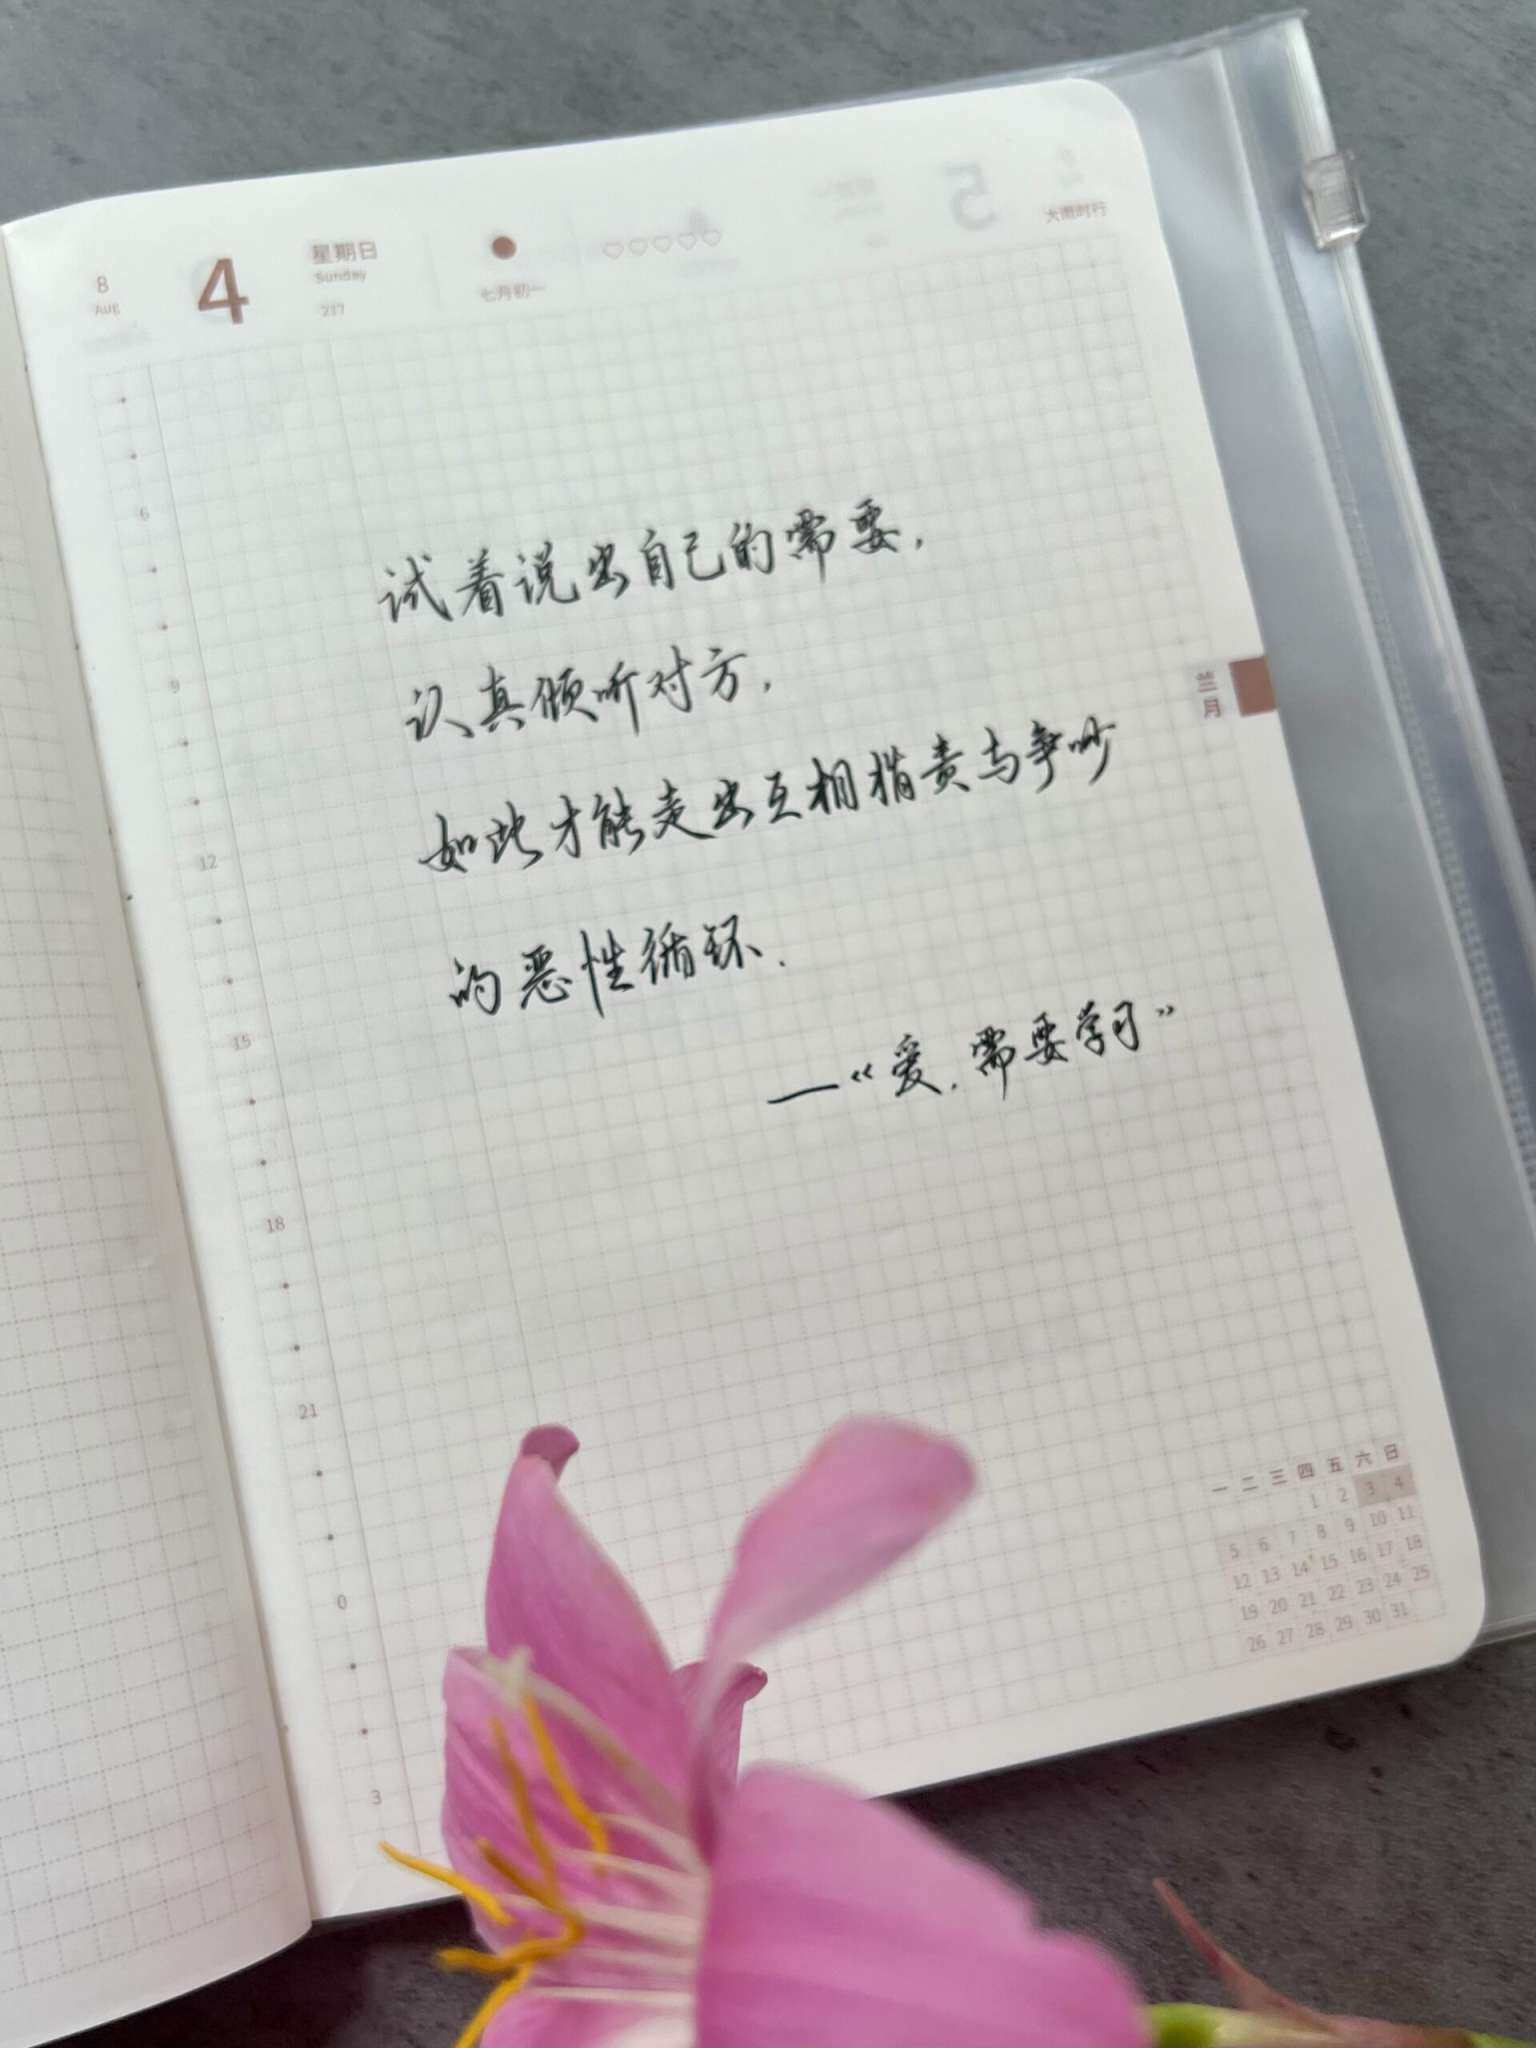 8
AUG
4
星期日
Sunday
217
七月初一
大雨时行
6
9
12
15
18
21
0
3
试着说出自己的需要,
认真倾听对方,
如此才能走出互相指责与争吵
的恶性循环.
—“爱,需要学习”
兰月
一 二 三 四 五 六 日
1 2 3 4
5 6 7 8 9 10 11
12 13 14 15 16 17 18
19 20 21 22 23 24 25
26 27 28 29 30 31